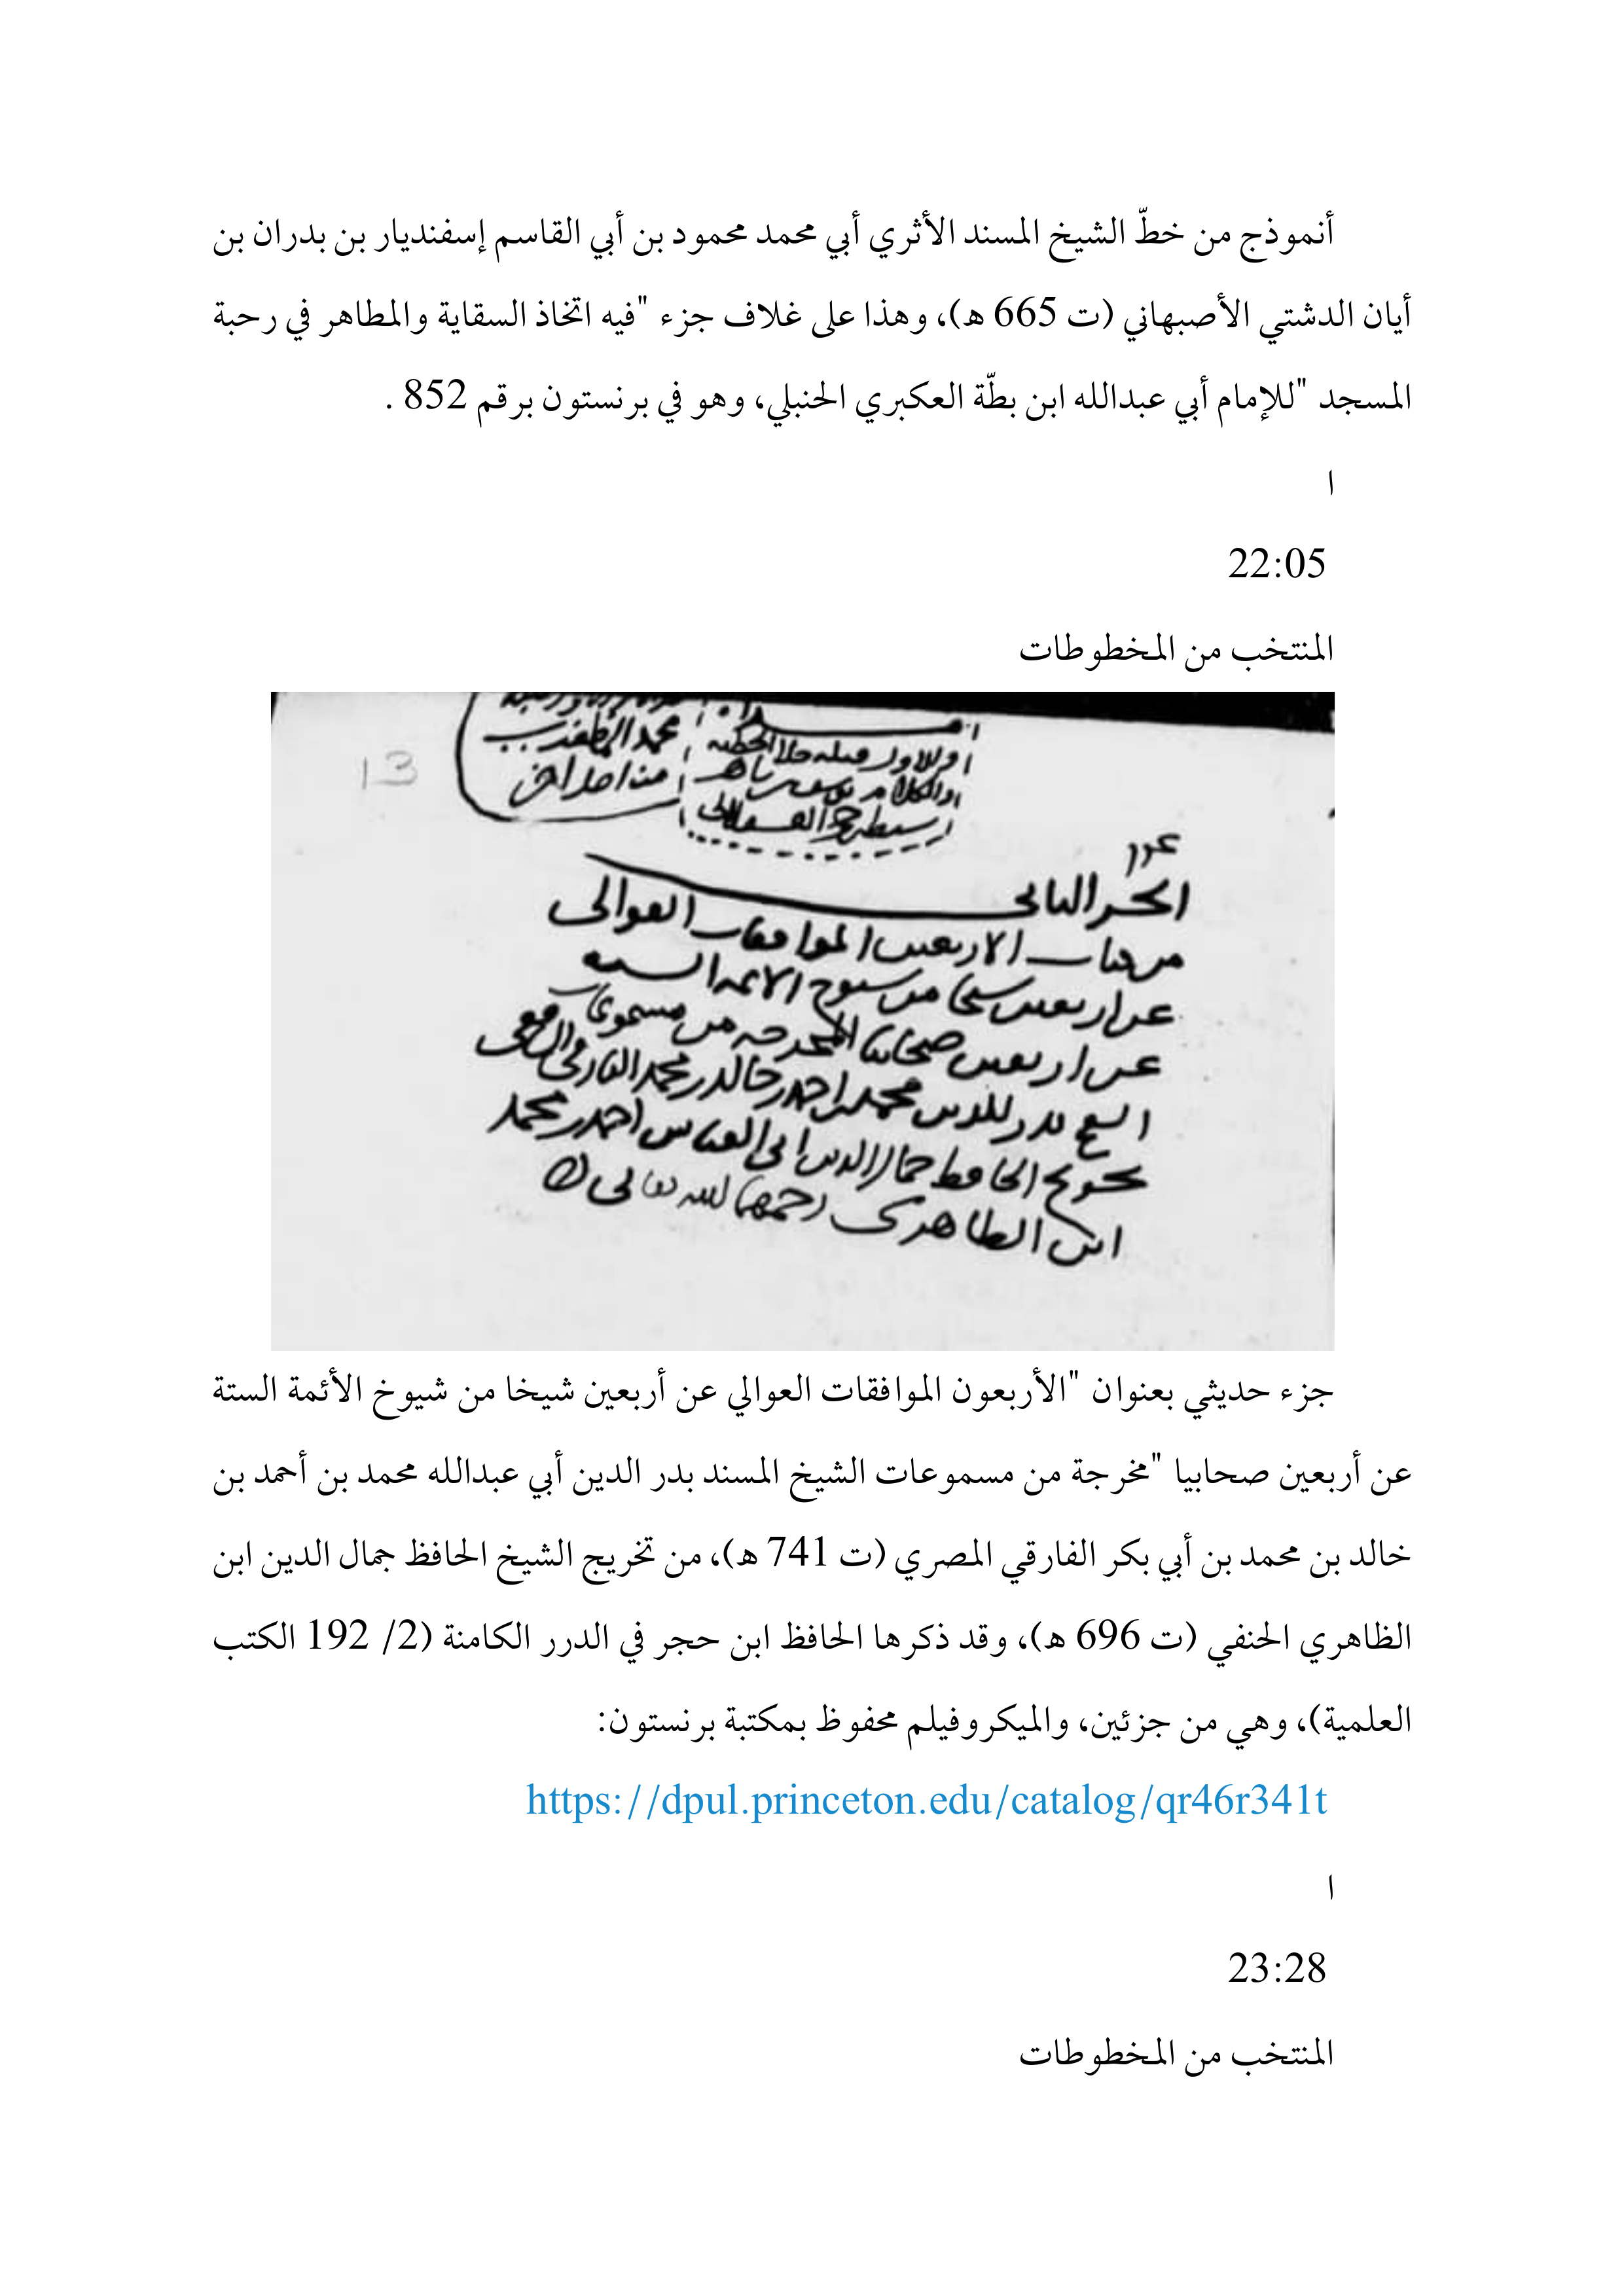 أنموذج من خطّ الشيخ المسند الأثري أبي محمد محمود بن أبي القاسم إسفنديار بن بدران بن
أيان الدشتي الأصبهاني (ت 665 ه)، وهذا على غلاف جزء "فيه اتخاذ السقاية والمطاهر في رحبة
المسجد "للإمام أبي عبدالله ابن بطّة العكبري الحنبلي، وهو في برنستون برقم 852 .
ا
22:05
المنتخب من المخطوطات
13
محمد المظفري
الجزء الثاني
من كتاب الاربعين الموافقات العوالى
عن اربعين شيخا من شيوخ الائمة الستة
عن اربعين صحابيا المخرجه من مسموعات
الشيخ بدر الدين محمد بن احمد بن خالد بن محمد الفارقي
تخريج الحافظ جمال الدين ابى العباس احمد بن محمد
ابن الظاهرى رحمهما الله تعالى
جزء حديثي بعنوان "الأربعون الموافقات العوالي عن أربعين شيخا من شيوخ الأئمة الستة
عن أربعين صحابيا "مخرجة من مسموعات الشيخ المسند بدر الدين أبي عبدالله محمد بن أحمد بن
خالد بن محمد بن أبي بكر الفارقي المصري (ت 741 ه)، من تخريج الشيخ الحافظ جمال الدين ابن
الظاهري الحنفي (ت 696 ه)، وقد ذكرها الحافظ ابن حجر في الدرر الكامنة (2/ 192 الكتب
العلمية)، وهي من جزئين، والميكروفيلم محفوظ بمكتبة برنستون:
https://dpul.princeton.edu/catalog/qr46r341t
ا
23:28
المنتخب من المخطوطات